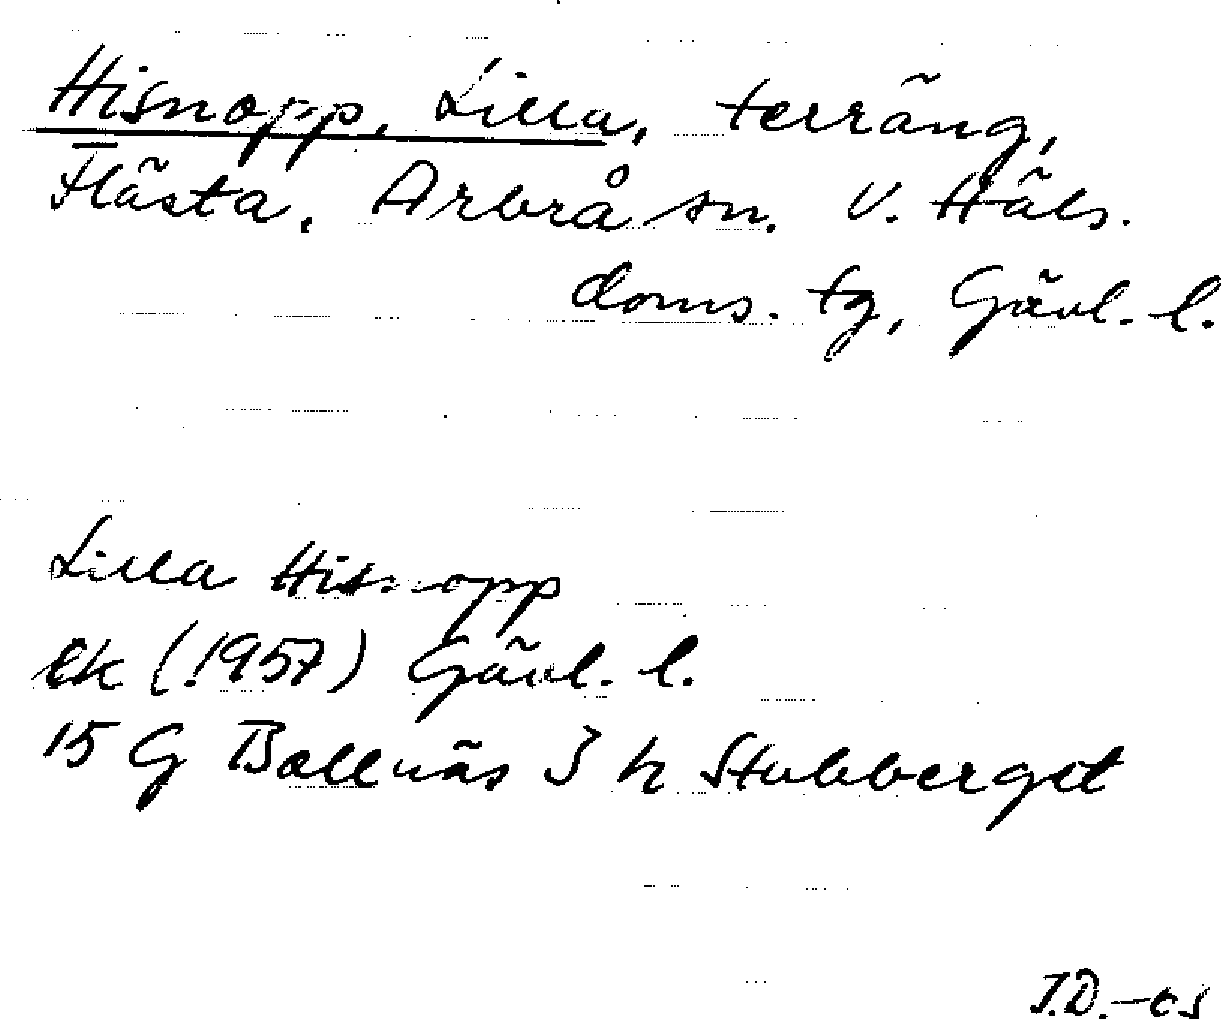 Hisnopp, Lilla, terräng,
Flästa, Arbrå sn. V. Häls.
doms. tg, Gävl. l.
Lilla Hisnopp
ek (1957) Gävl. l.
15 G Bollnäs 3 h Stubberget